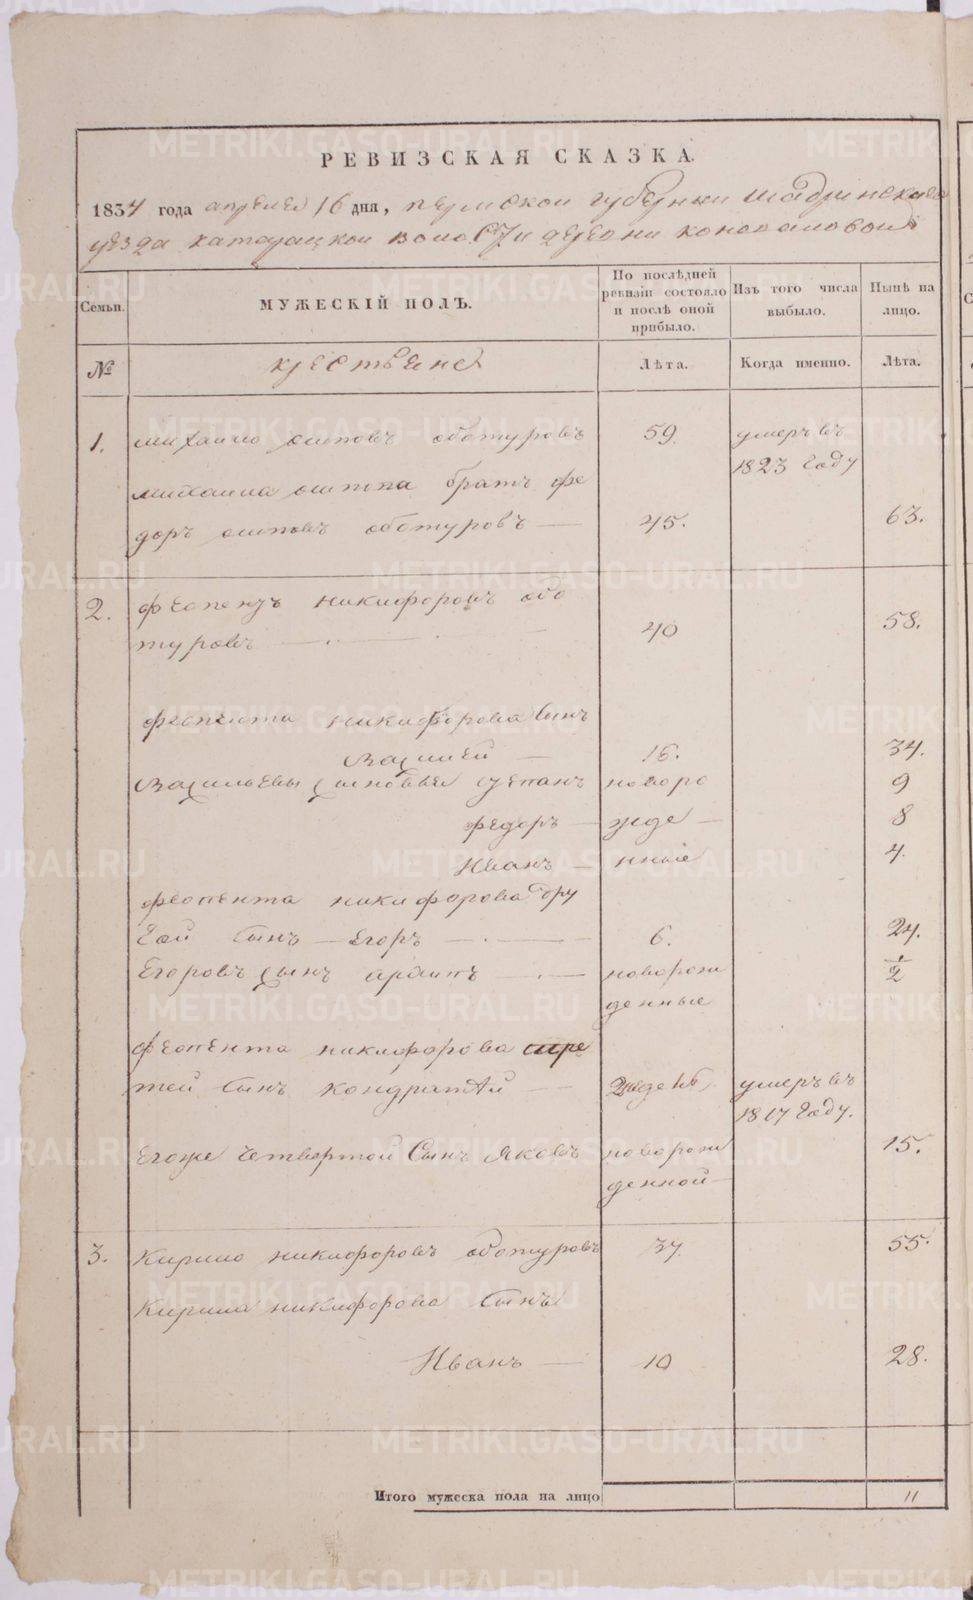 РЕВИЗСКАЯ СКАЗКА.
1834 года апреля 16 дня, пермской губернии шадринскаго
уезда катарацкой волости деревни коноваловой
Семьи. МУЖЕСКІЙ ПОЛЪ. По послѣдней ревизіи состояло и послѣ оной прибыло. Изъ того числа выбыло. Нынѣ на лицо.
№ крестьяне Лѣта. Когда именно. Лѣта.
1. михаило осиповъ оботуровъ 59. умеръ въ
1823 году
михаила осипа братъ фе
доръ осиповъ оботуровъ 45. 63.
2. никифоровъ обо
туровъ 40 58.
феопента никифорова сынъ
Василей 16. 34.
Васильевы сыновья степанъ новоро 9
федоръ жде 8
Иванъ нные 4.
феопента никифорова дру
гой сынъ Егоръ 6. 24.
Егоровъ сынъ новорож 1/2
денные
феопента никифорова тре
тей сынъ кондратей умеръ въ
1817 году.
Егоже четвертой Сынъ Яковъ новорож 15.
денной
3. Кирило никифоровъ оботуровъ 37. 55.
Кирила никифорова сынъ
Иванъ 10 28.
Итого мужеска пола на лицо 11
METRIKI.GASO-URAL.RU